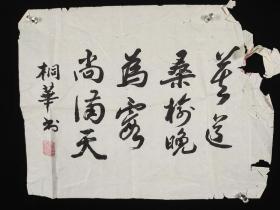 莫道
桑榆晚
為霞
尚满天
桐華书